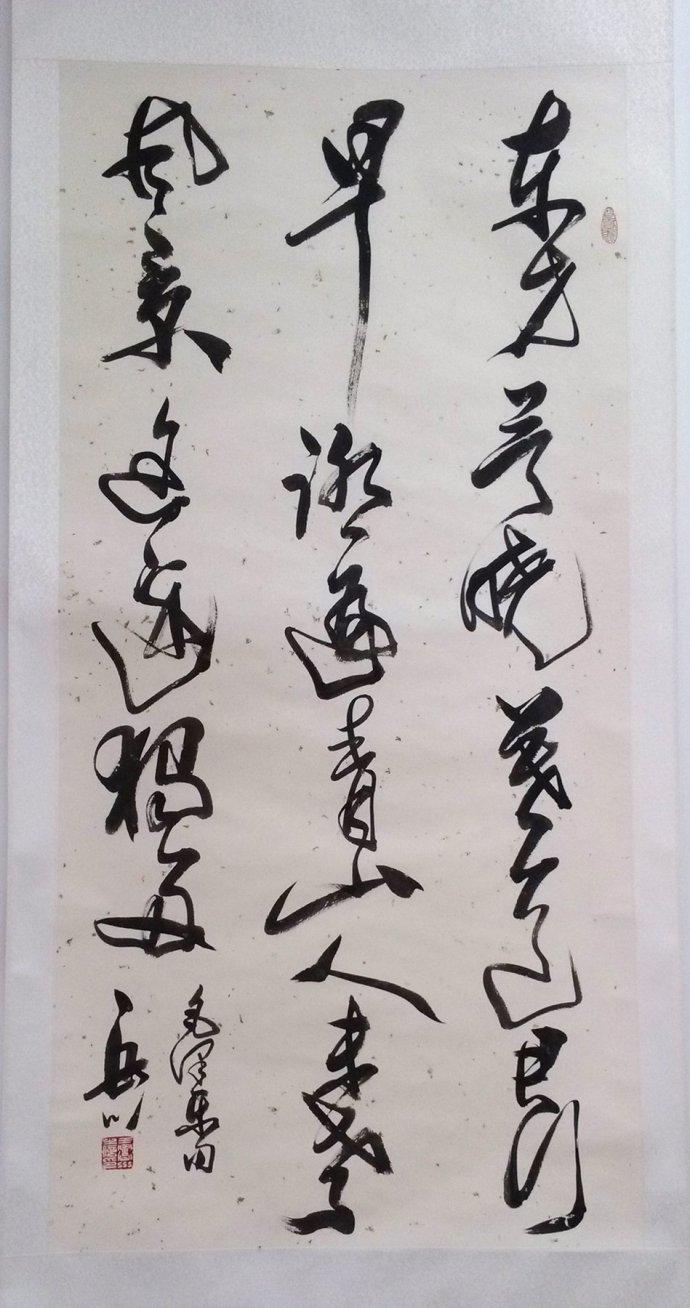 东方欲晓莫道君行
早踏遍青山人未老
风景这边独好
毛泽东词
岳川